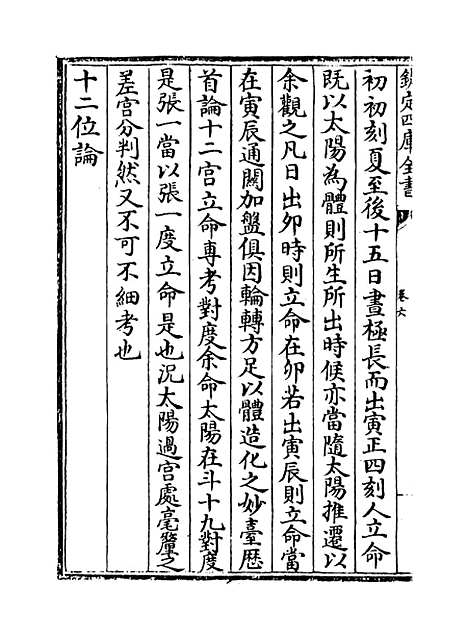 欽定四庫全書
卷六
初初刻夏至後十五日晝極長而出寅正四刻人立命
既以太陽為體則所生所出時候亦當隨太陽推遷以
余觀之凡日出卯時則立命在卯若出寅辰則立命當
在寅辰通關加盤俱因輪轉方足以體造化之妙臺歴
首論十二宮立命專考對度余命太陽在斗十九對度
是張一當以張一度立命是也況太陽過宮處毫釐之
差宮分判然又不可不細考也
十二位論